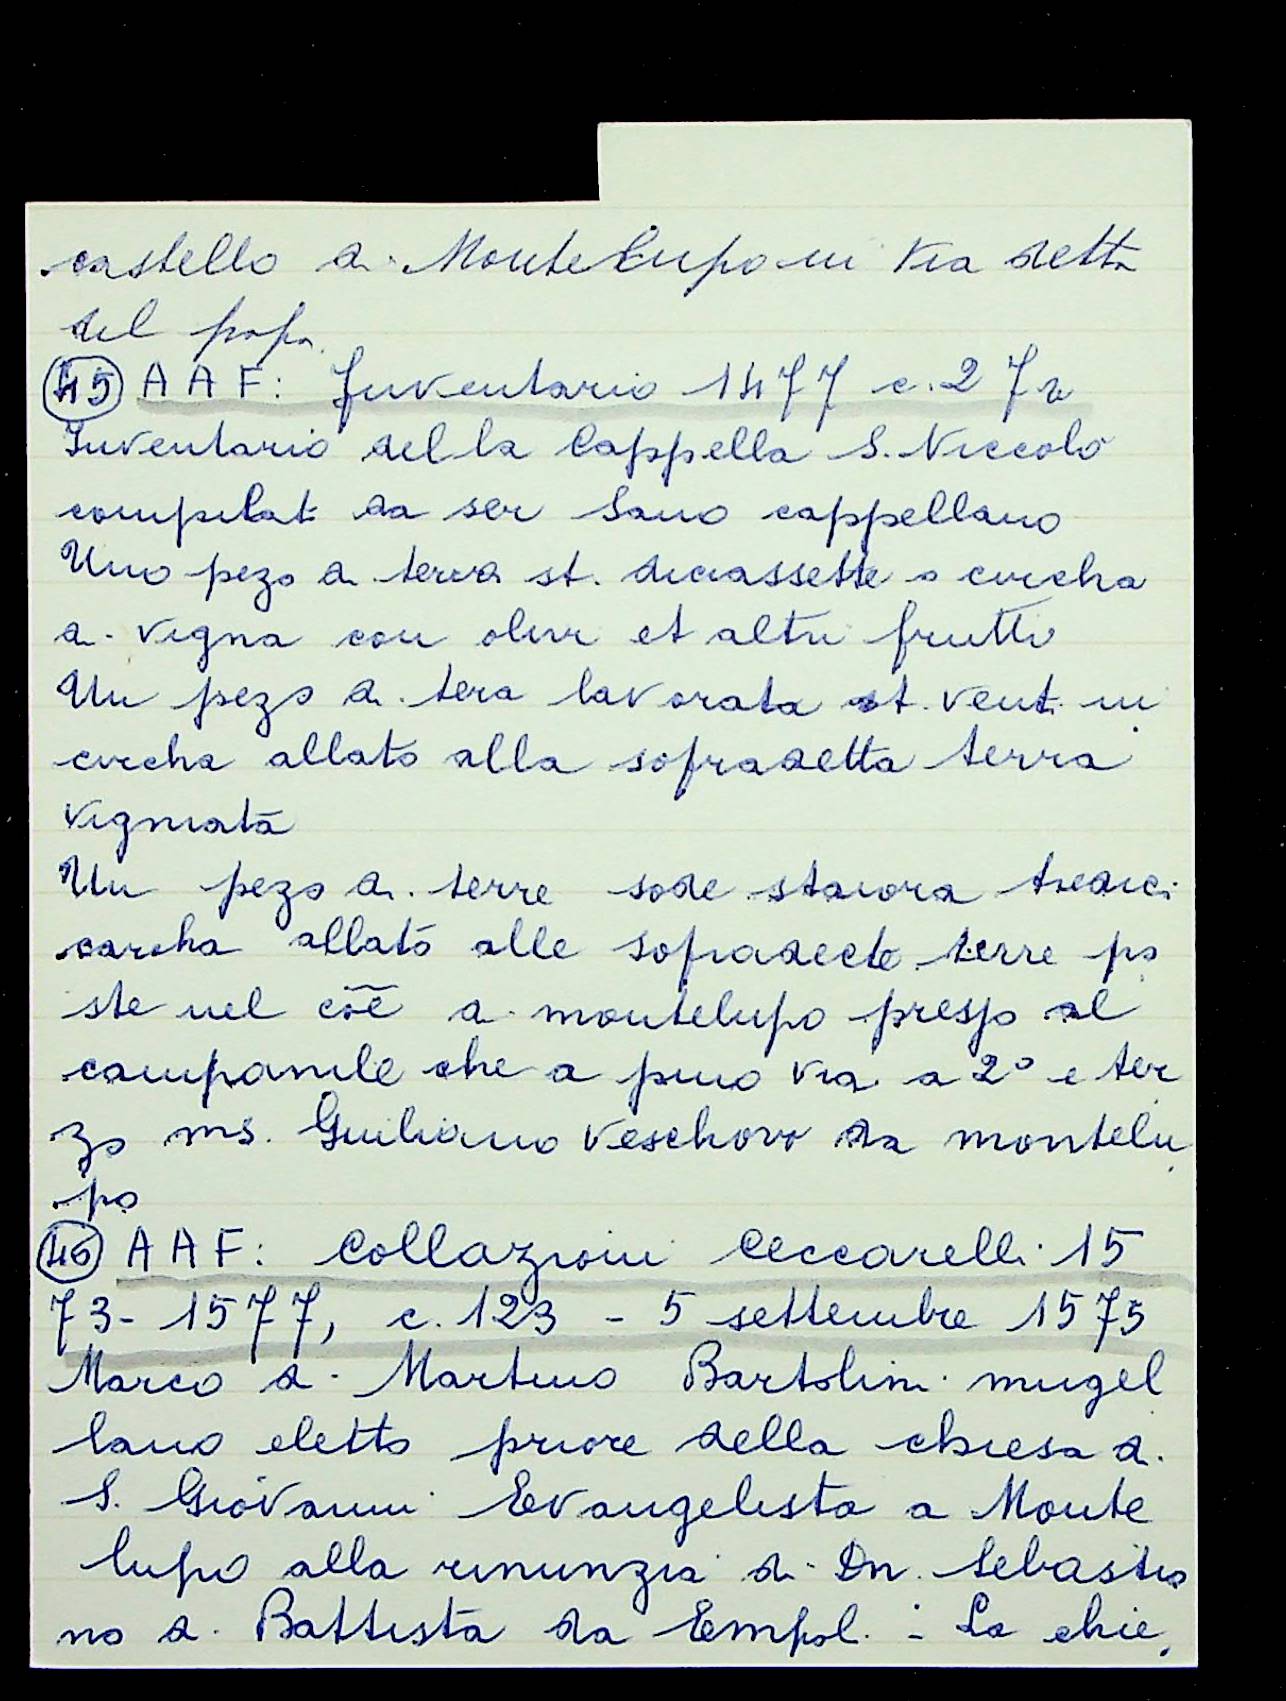 castello di Monte Lupo in Via detta
del popo
45 AAF: Inventario 1477 c. 27r
Inventario della Cappella S. Niccolò
compilat da ser Sano cappellano
Uno pezo di terra st. diciassette o circha
a vigna con olivi et altri frutti
Un pezo di tera lavorata st. venti in
circha allato alla sopradetta terra
vigniata
Un pezo di terre sode staiora tredici
carcha allato alle sopradecte terre po
ste nel cõẽ di montelupo presso al
campanile che a pmo via a 2º e ter
zo ms. Giuliano veschovo da montelu
po
46 AAF: Collazioni Ceccarelli 15
73-1577, c. 123 - 5 settembre 1575
Marco di Martino Bartolini mugel
lano eletto priore della chiesa di
S. Giovanni Evangelista a Monte
lupo alla rinunzia di Dn. Sebastia
no di Battista da Empoli - La chie